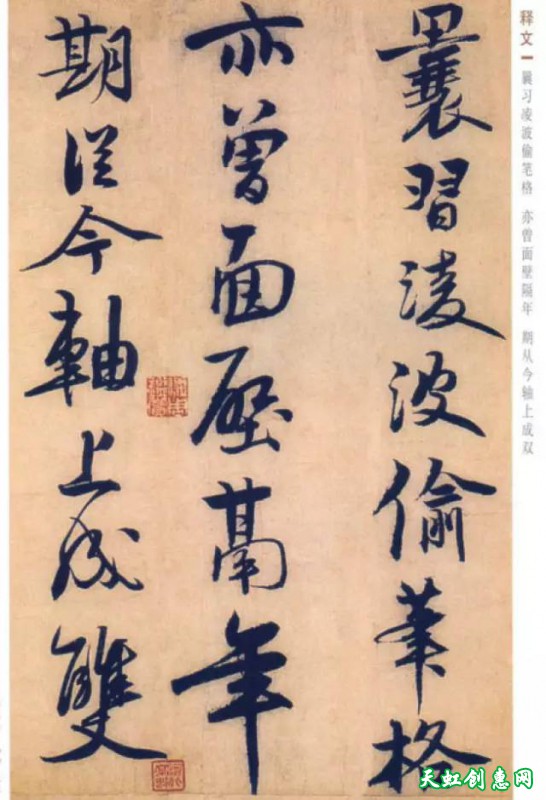 释文一
曩习凌波偷笔格 亦曾面壁隔年 期从今轴上成双
曩習淩波偷筆格
亦曾面壁鬲年
期從今軸上成雙
天虹创惠网